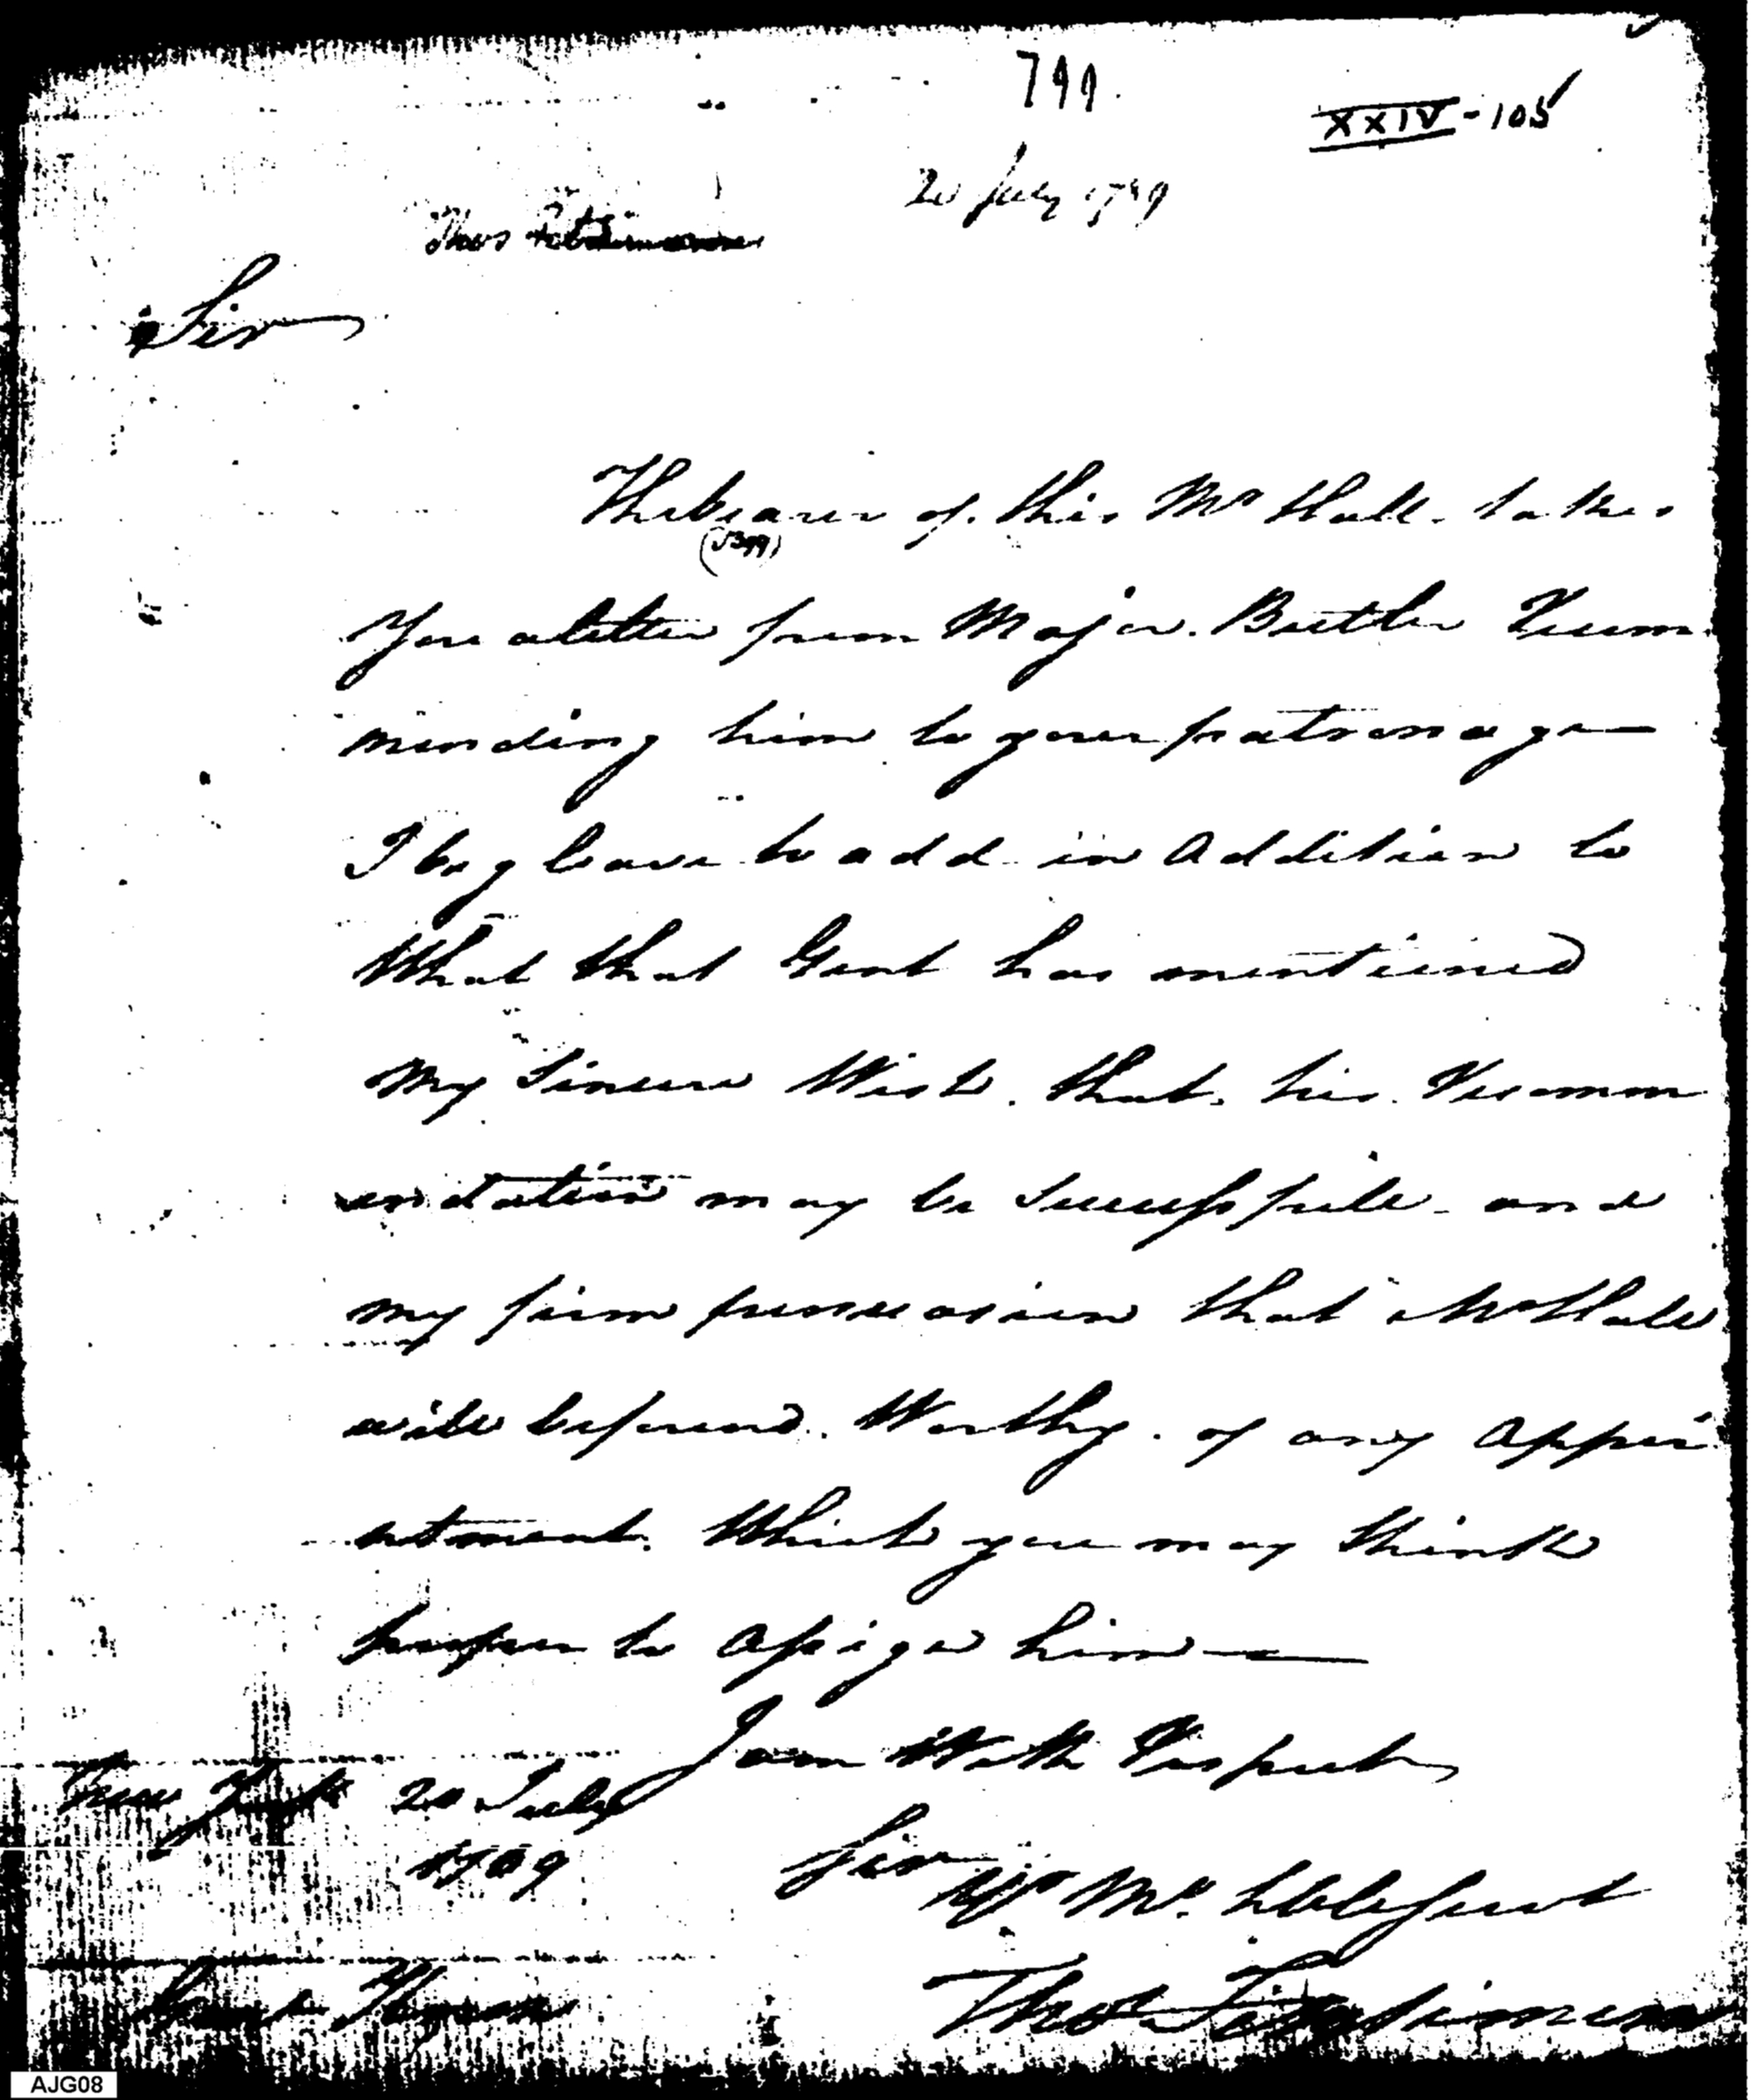 799.
XXIV-105
20 July 1789
Thos
Sir
The bearer of this Mr Hall takes
You a letter from Major Butler Recom
mending him to your patronage—
I beg leave to add in Addition to
What that Gent has mentioned
My Sincere Wish that his Recomm
endation may be Successful and
my firm persuasion that Mr Hall
will be found Worthy of any Appoi
ntment Which you may think
proper to Assign him—
I am With Respect
New York 20 July
1789
Sir
Yr Mt. Obb Servt
Thos Fitzsimons
AJG08